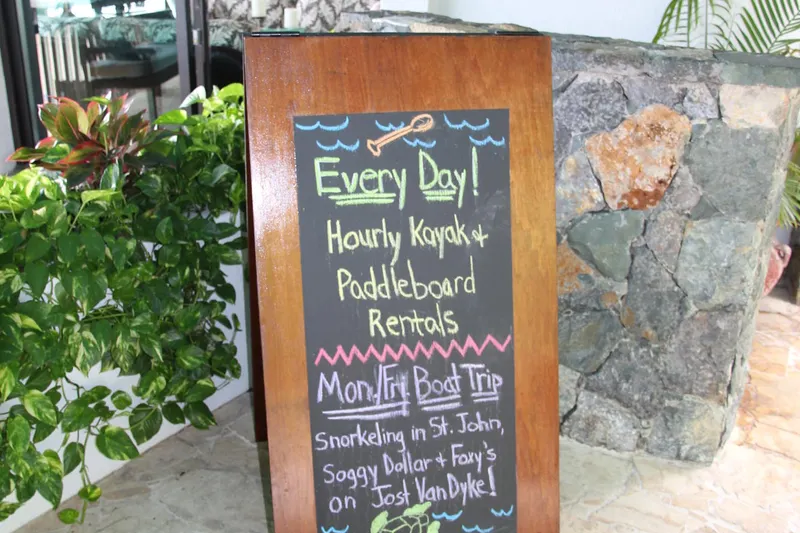 Every Day!
Hourly Kayak &
Paddleboard
Rentals
Mon/Fry Boat Trip
Snorkeling in St. John,
Soggy Dollar & Foxy's
on Jost Van Dyke!